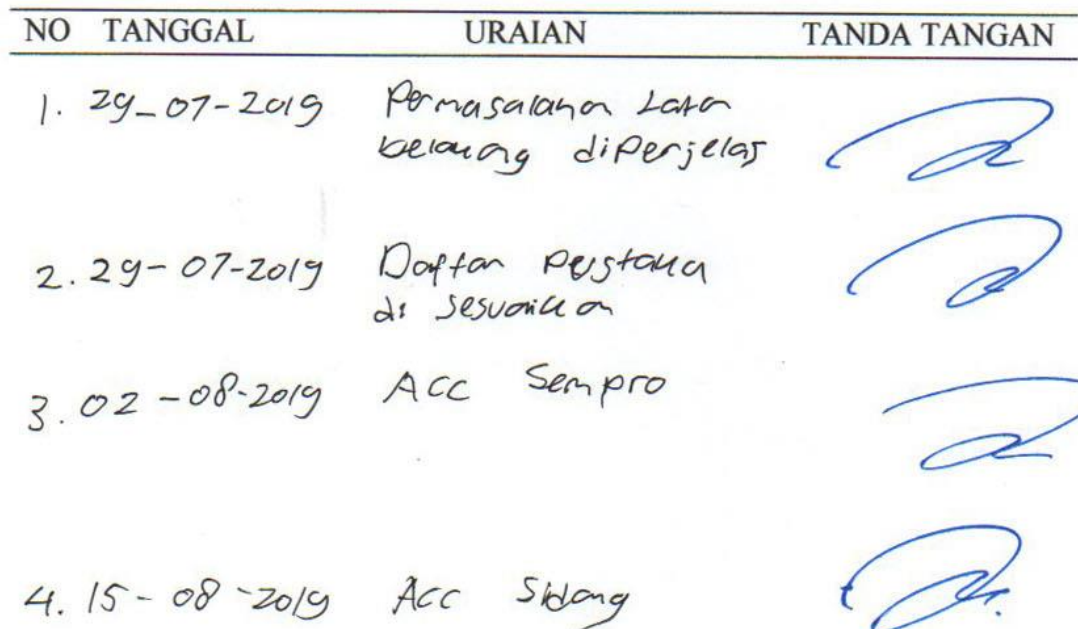 NO TANGGAL URAIAN TANDA TANGAN
1. 29-07-2019 Permasalahan Latar
belakang diperjelas
2. 29-07-2019 Daftar pustaka
di sesuaikan
3. 02-08-2019 Acc Sempro
4. 15-08-2019 Acc Sidang